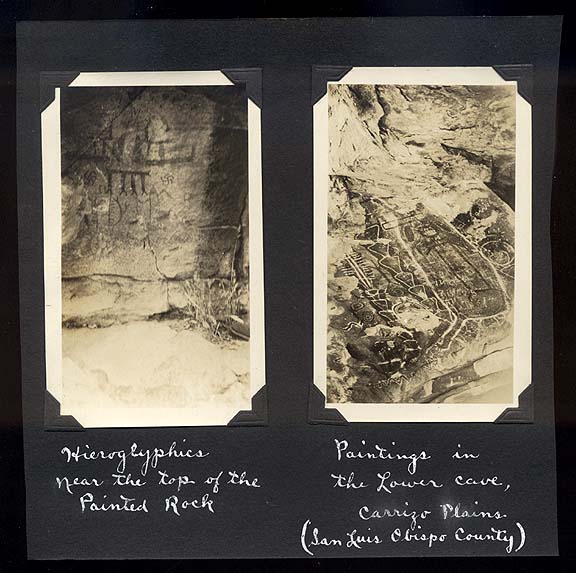 Hieroglyphics
near the top of the
Painted Rock
Paintings in
the Lower cave,
Carrizo Plains.
(San Luis Obispo County)